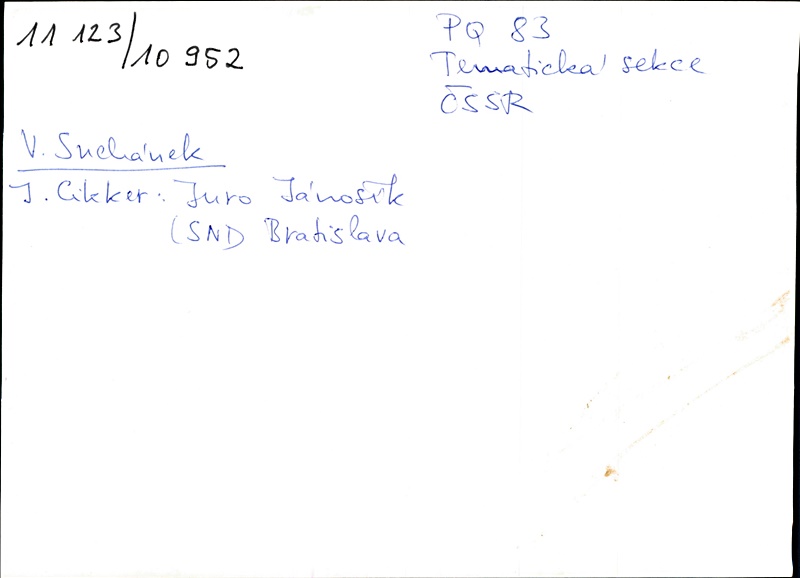 11 123/10 952
PQ 83
Tematická sekce
ČSSR
V. Suchánek
J. Cikker: Juro Jánošík
(SND Bratislava